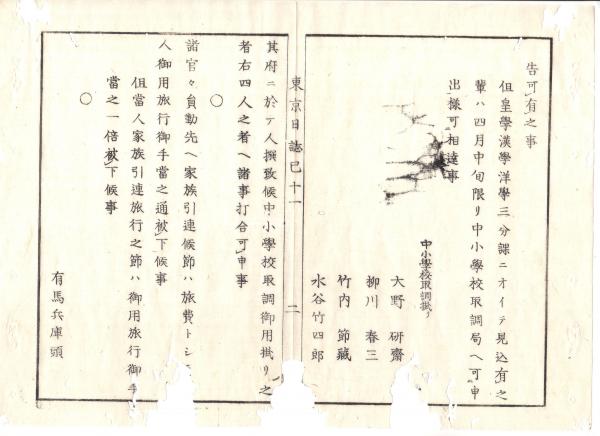 告可有之事
但皇學漢學洋學三分課ニオイテ見込有之
輩ハ四月中旬限リ中小學校取調局ヘ可申
出樣可相達事
中小學校取調掛リ
大野研齋
柳川春三
竹内節藏
水谷竹四郎
東京日誌巳十一
二
其府ニ於テ人撰致候中小學校取調御用掛リ之
者右四人之者ヘ諸事打合可申事
○
諸官々員動先ヘ家族引連候節ハ旅費トシ
人御用旅行御手當之通被下候事
但當人家族引連旅行之節ハ御用旅行御手
當之一倍被下候事
○
有馬兵庫頭